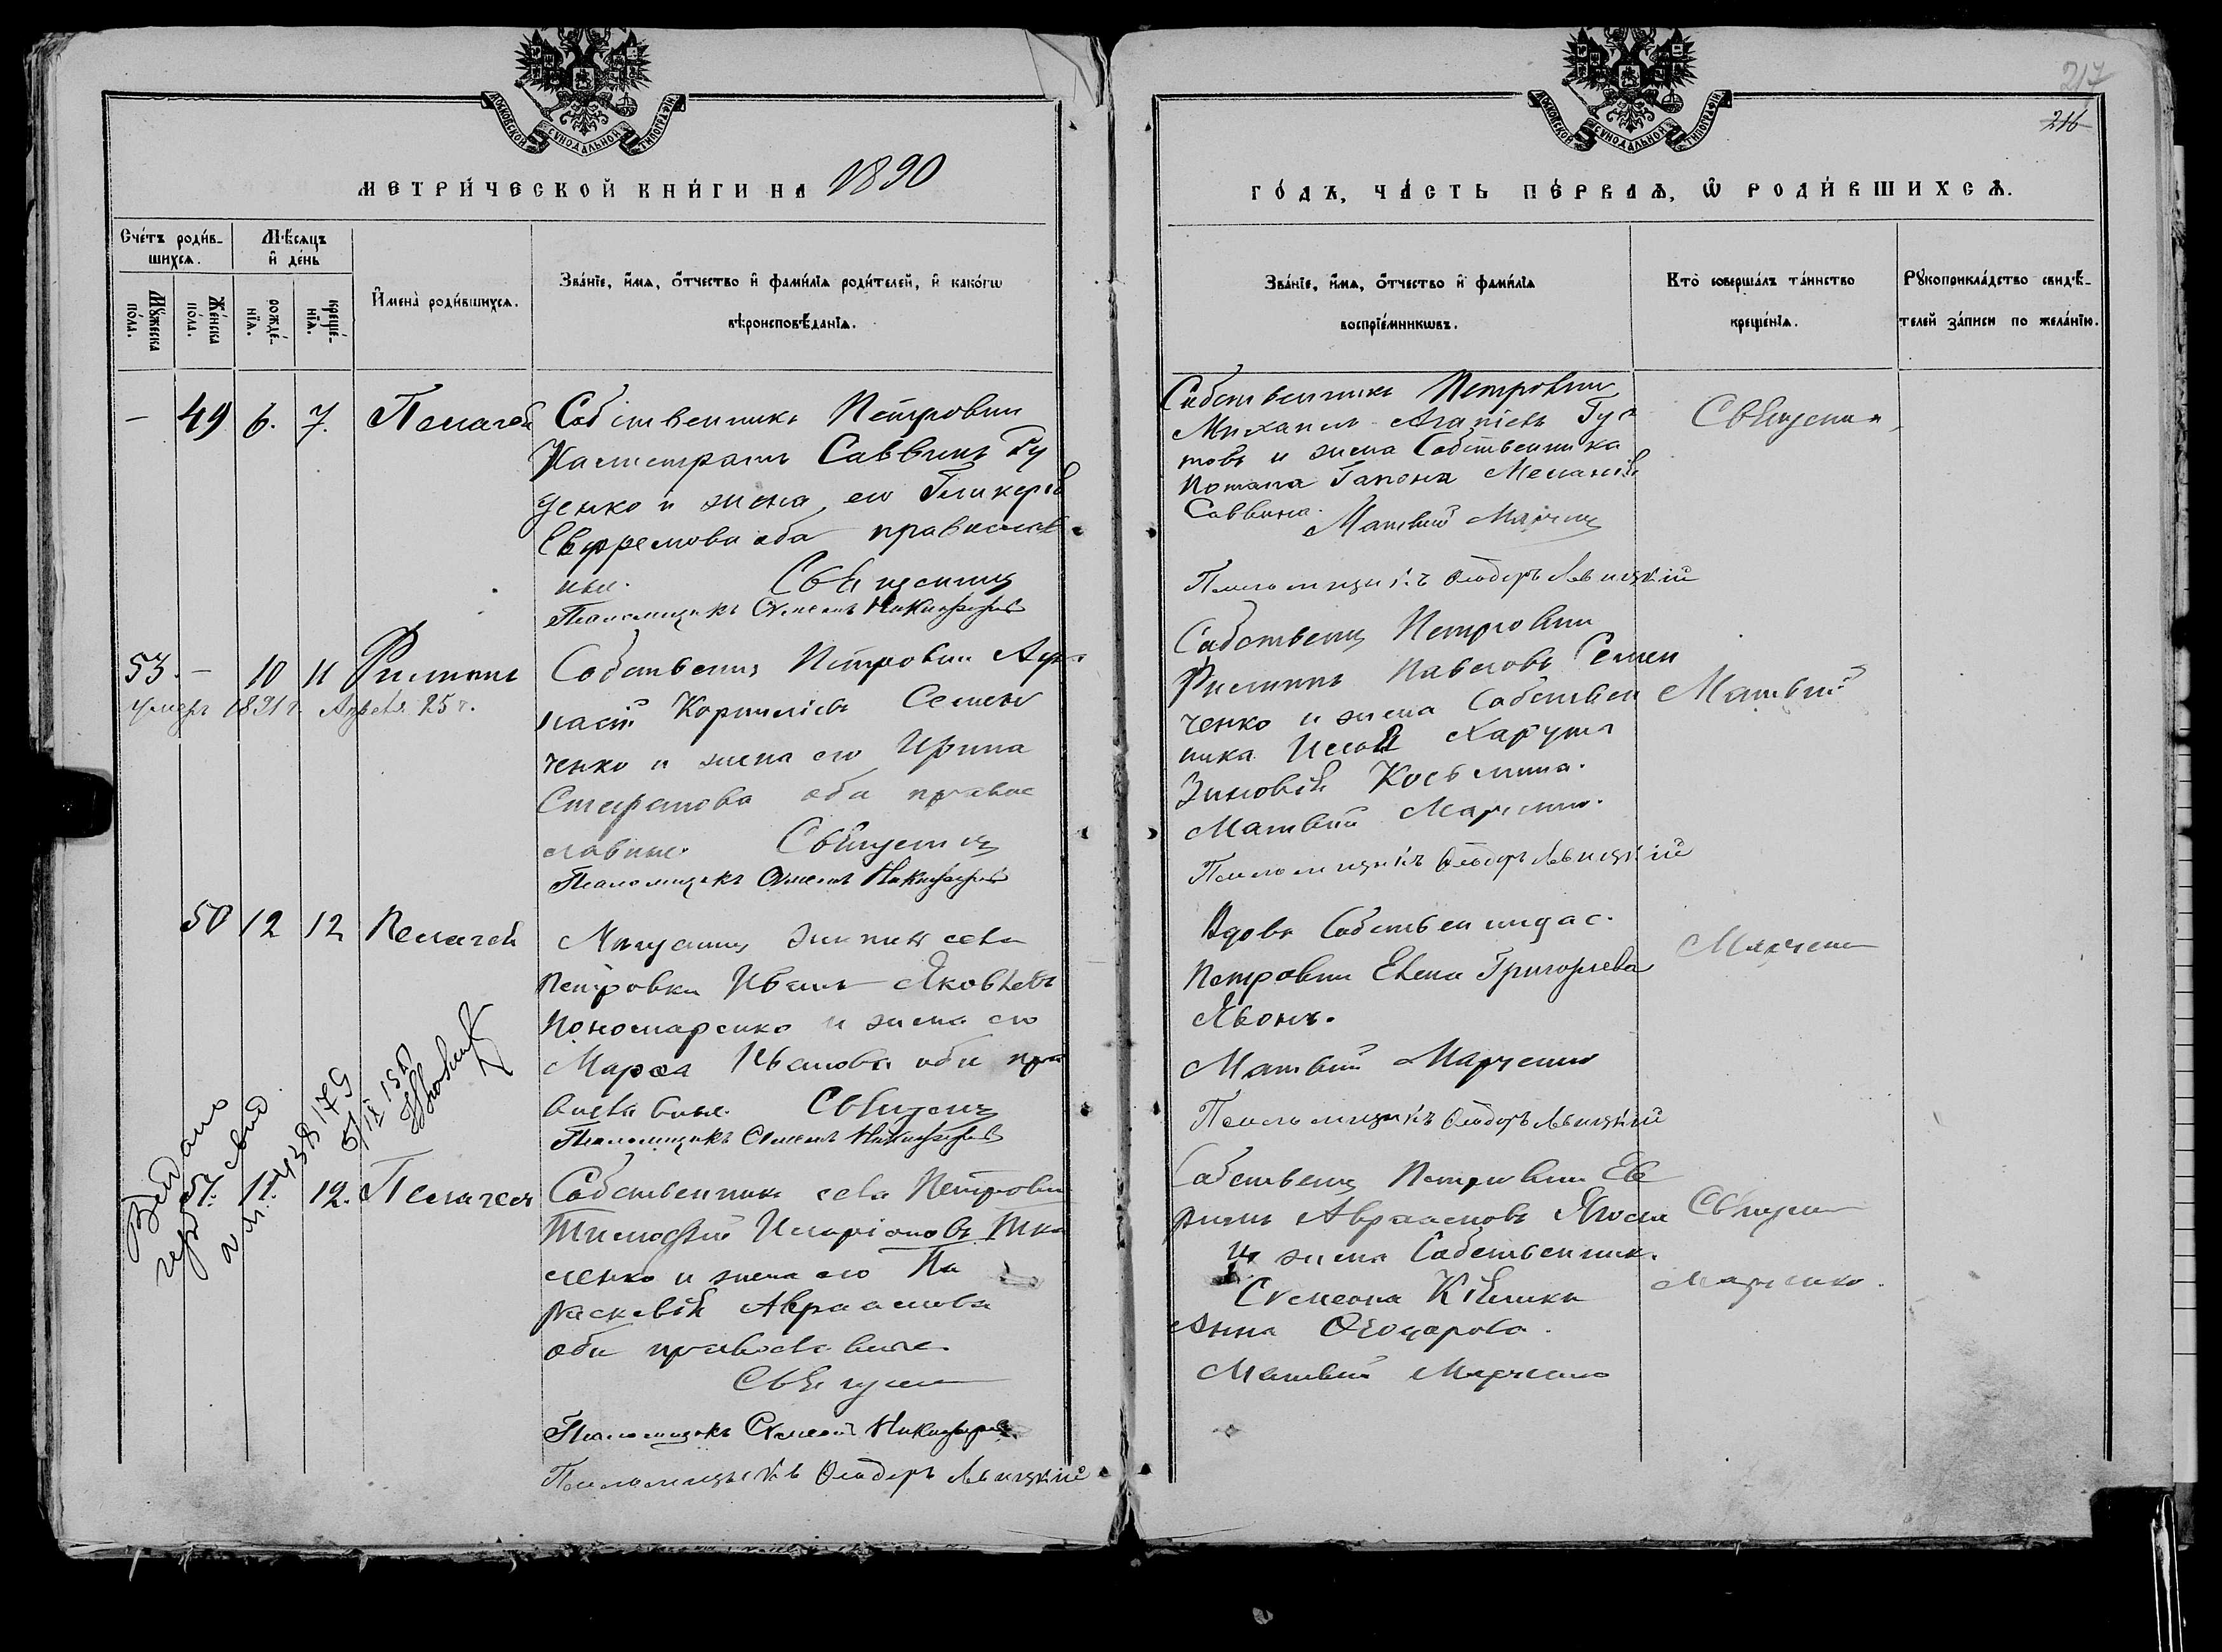 МОСКОВСКОЙ СѴНОДАЛЬНОЙ ТИПОГРАФІИ
МЕТРИ́ЧЕСКОЙ КНИ́ГИ НА 1890
Сче́тъ роди́в-
шихсѧ.
Мѣ́сѧцъ
и҆ де́нь
Мꙋ́жеска
по́ла.
Же́нска
по́ла.
рожде́-
нїѧ.
креще́-
нїѧ.
И҆мена̀ роди́вшихсѧ.
Зва́нїе, и҆́мѧ, ѻ҆́тчество и҆ фами́лїѧ роди́телей, и҆ како́гѡ
вѣроисповѣ́данїѧ.
– 49 6. 7. Пелагея
Собственникъ Петровки
Калистратъ Саввинъ Гу
денко и жена его Гликерія
Евфремова оба православ
ные. Священникъ
Псаломщикъ Сѵмеонъ Никифоровъ
53. – 10 11 Филиппъ
умеръ 1891 г. Апрѣля 25 г.
Собственникъ Петровки
Корнилієвъ Семен
ченко и жена его Ирина
Стефанова оба правос
лавные. Священникъ
Псаломщикъ Сѵмеонъ Никифоровъ
50 12 12 Пелагея
Мещанинъ села
Петровки Иванъ Яковлевъ
Пономаренко и жена его
Марѳа Иванова оба пра
вославные. Священникъ
Псаломщикъ Сѵмеонъ Никифоровъ
Видано
свид
51. 11. 12. Пелагея
Собственникъ села Петровки
Тимофей Иларіоновъ Тка
ленко и жена его Па
раскевія Авраамова
оба православные.
Священникъ
Псаломщикъ Сѵмеонъ Никифоровъ
Псаломщикъ Ѳеодоръ Левицкій
217
216
МОСКОВСКОЙ СѴНОДАЛЬНОЙ ТИПОГРАФІИ
ГО́ДЪ, ЧА́СТЬ ПЕ́РВАѦ, Ѡ҆ РОДИ́ВШИХСѦ.
Зва́нїе, и҆́мѧ, ѻ҆́тчество и҆ фами́лїѧ
воспрїе́мникѡвъ.
Кто̀ соверша́лъ та́инство
креще́нїѧ.
Рꙋкоприкла́дство свидѣ́-
телей за́писи по жела́нїю.
Собственникъ Петровки
Михаилъ
товъ и жена Собственника
Потапа Гапона Меланія
Саввина.
Матвій Марченко
Псаломщикъ Ѳеодоръ Левицкій
Священникъ
Собственникъ Петровки
Филиппъ Павловъ Семен
ченко и жена Собствен
ника Харута
Зиновія Косьмина.
Матвій Марченко.
Псаломщикъ Ѳеодоръ Левицкій
Матвій
Вдова Собственница с.
Петровки Елена Григорьева
Явонъ.
Матвій Марченко
Псаломщикъ Ѳеодоръ Левицкій
Марченко
Собственникъ Петровки Ев
Авраамовъ
и жена Собственника
Сѵмеона
Анна
Матвій Марченко
Священникъ
Марченко.